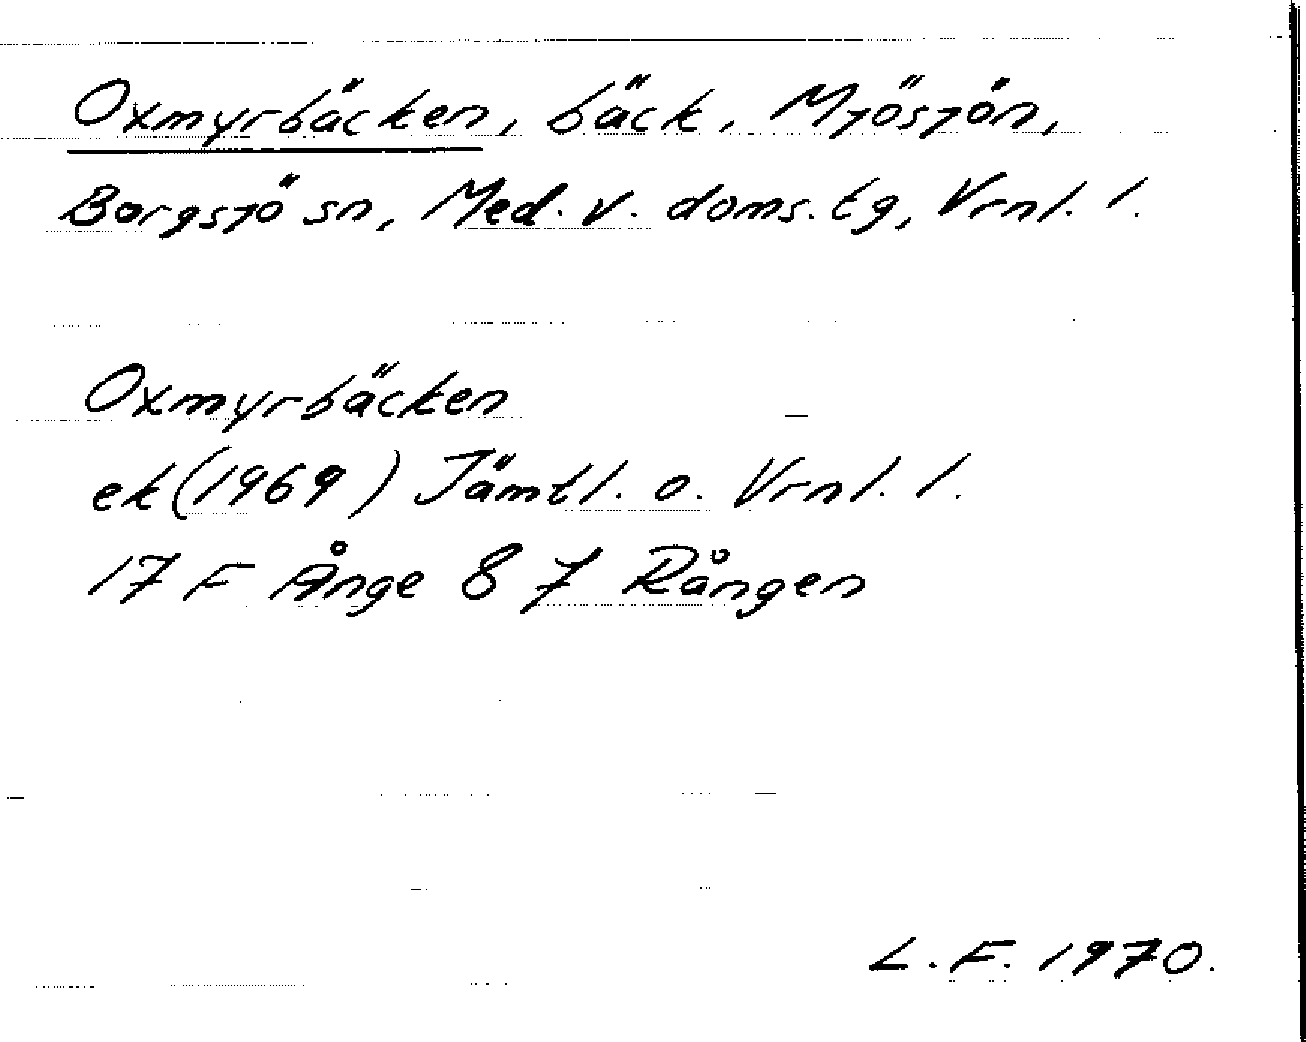 Oxmyrbäcken, bäck, Mjösjön,
Borgsjö sn, Med. v. doms. tg, Vrnl. l.
Oxmyrbäcken
ek (1969) Jämtl. o. Vrnl. l.
17 F Ånge 8 j Rången
L. F. 1970.